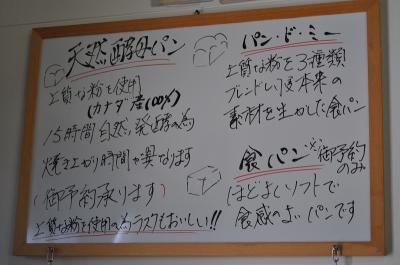 天然酵母パン
上質な粉を使用
(カナダ産100%)
15時間自然発酵の為
焼き上がり時間が異なります
(御予約承ります)
上質な粉を使用の為ラスクもおいしい!!
パン・ド・ミー
上質な粉を3種類
ブレンドし小麦本来の
素材を生かした食パン
食パン ※御予約のみ
ほどよいソフトで
食感のよいパンです